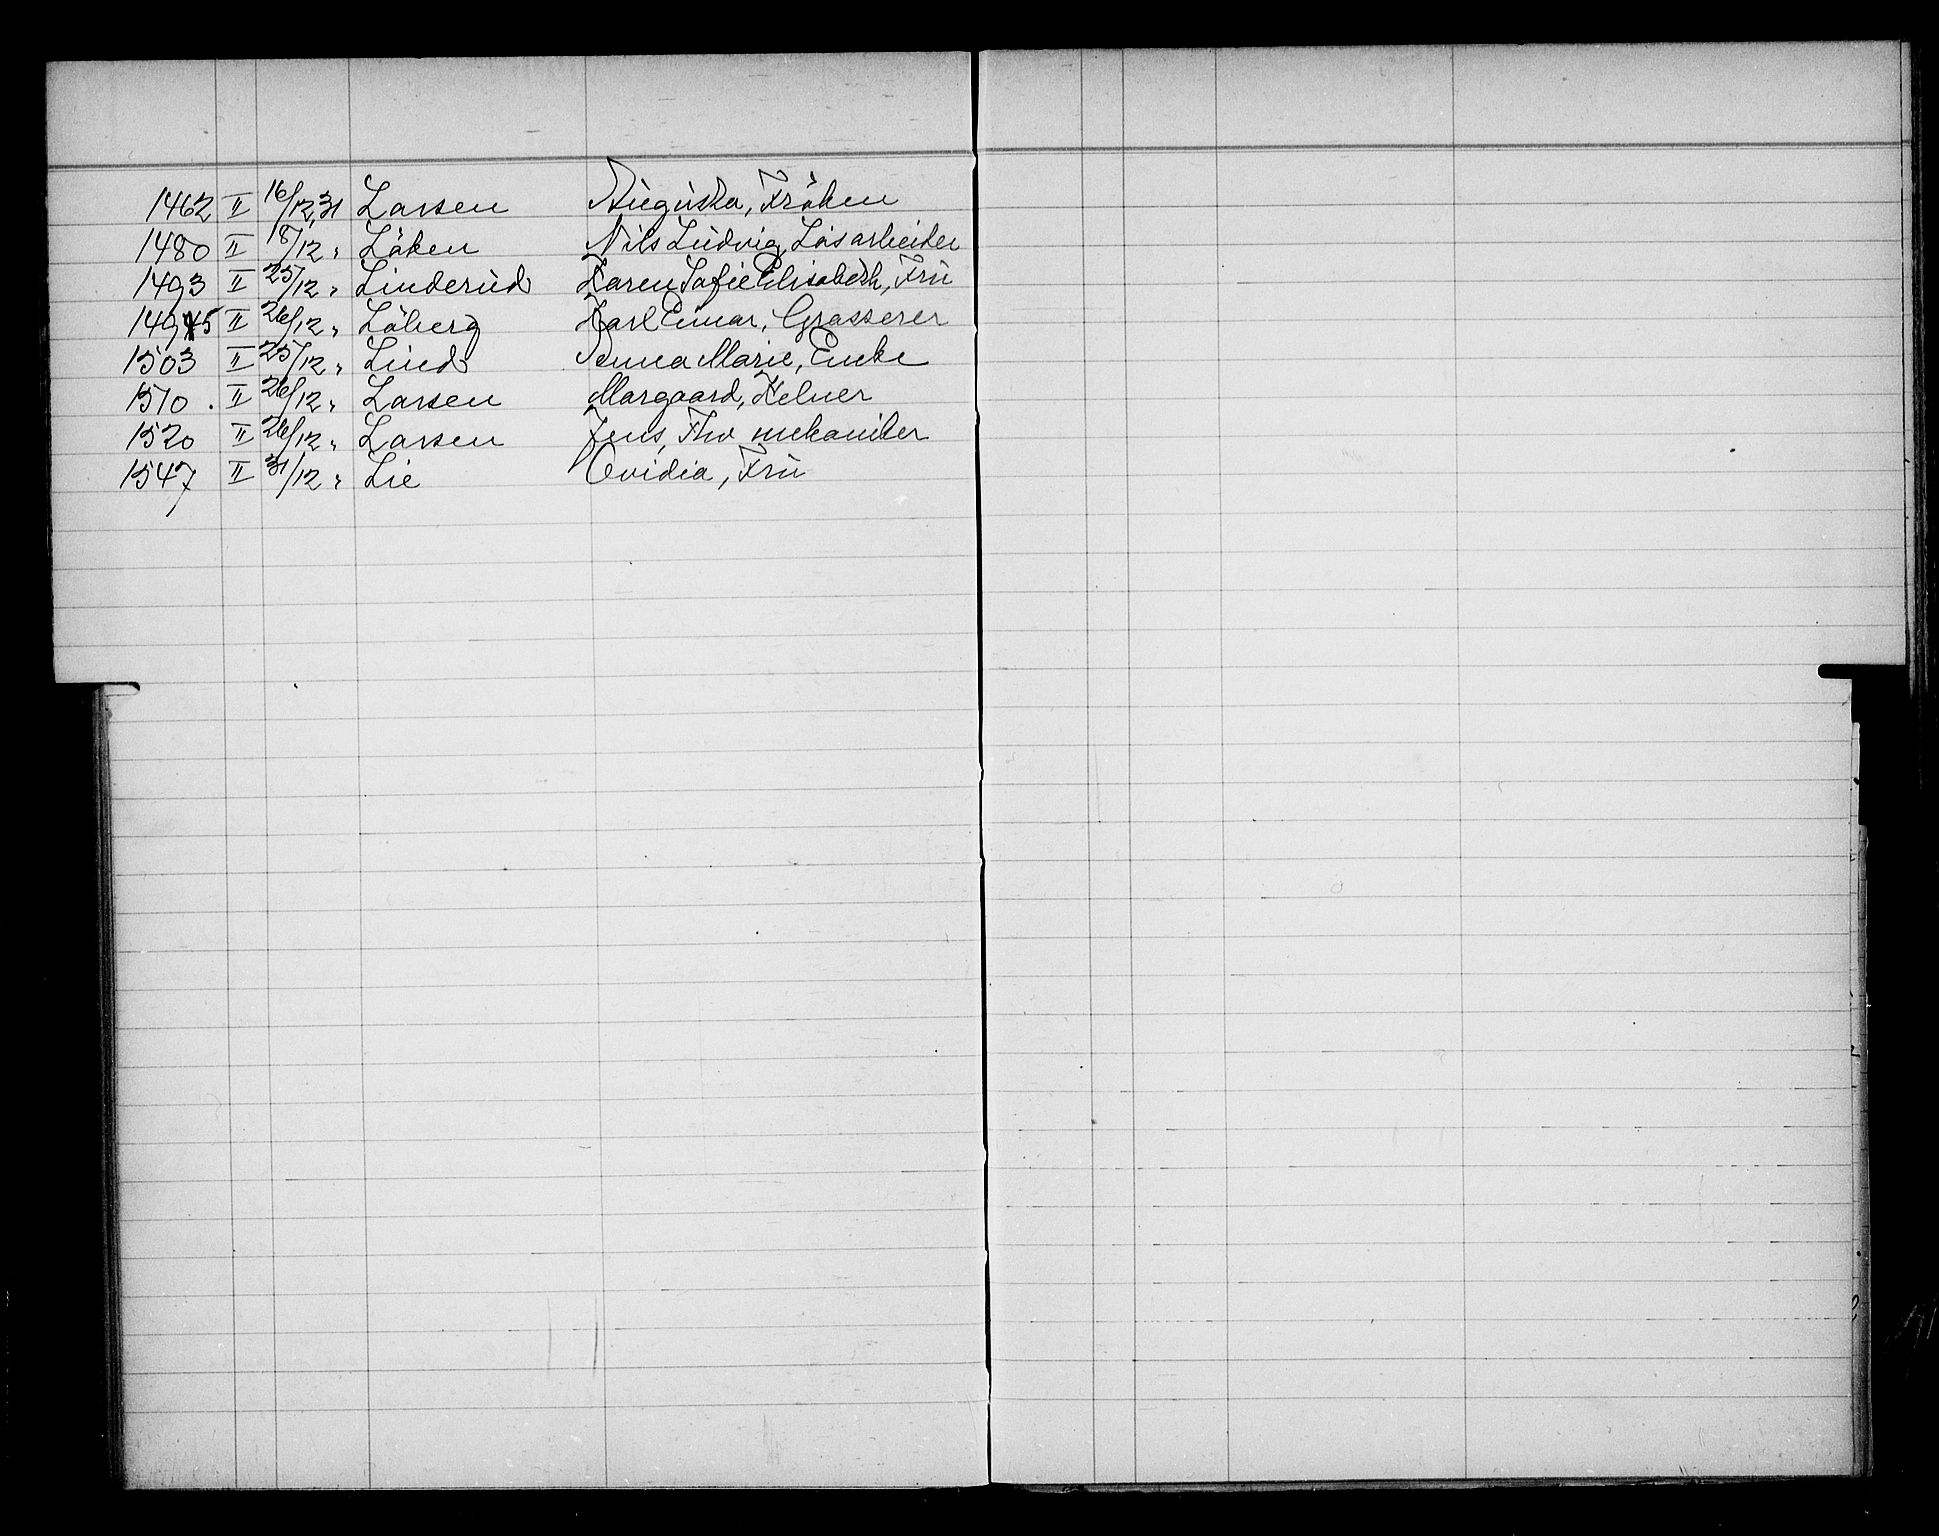 1462 II 16/12,31 Larsen Augusta, Fröken
1480 II 18/12 " Löken Nils Ludvig, Løsarbeider
1493 II 25/12 " Linderud Karen Sofie Elisabeth, Frü
1495 II 26/12 " Löberg Karl Einar, Grosserer
1503 II 25/12 " Lind Anna Marie, Enke
1510 . II 26/12 " Larsen Margaard, Kelner
1520 II 26/12 " Larsen Jens, Thv mekaniker
1547 II 31/12 " Lie Ovidia, Frü